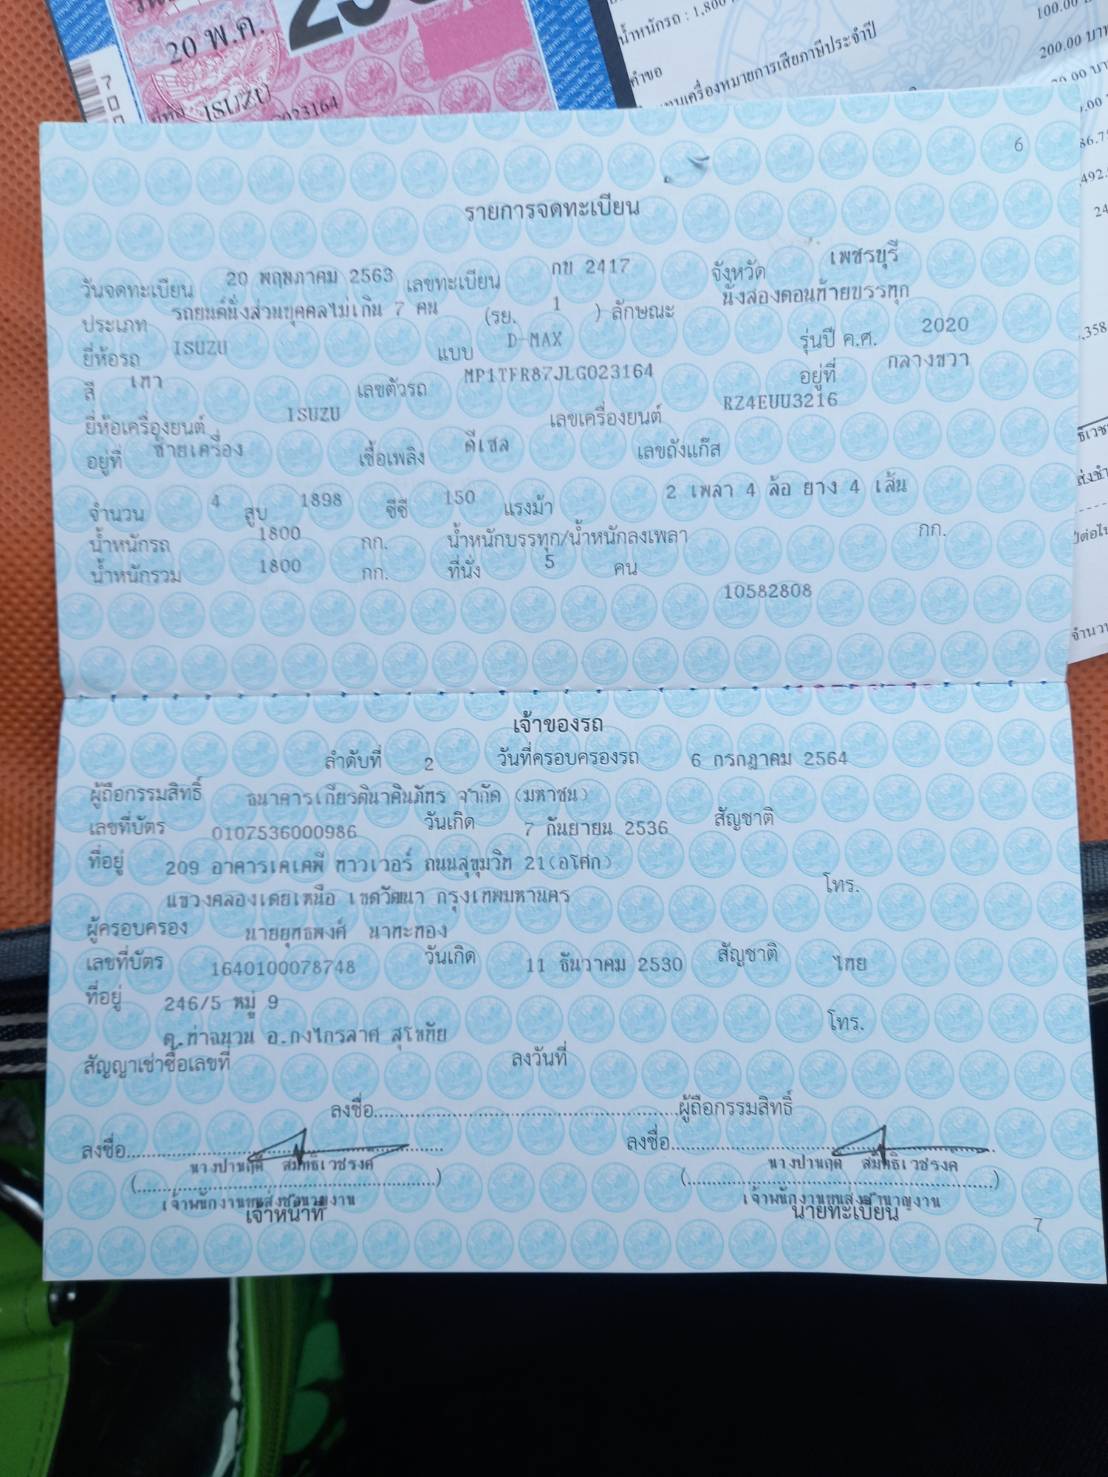 20 พ.ค.
ISUZU
น้ำหนักรถ : 1,800
คำขอ
เครื่องหมายการเสียภาษีประจำปี
100.00
200.00 บาท
6
รายการจดทะเบียน
วันจดทะเบียน 20 พฤษภาคม 2563 เลขทะเบียน กข 2417 จังหวัด เพชรบุรี
ประเภท รถยนต์นั่งส่วนบุคคลไม่เกิน 7 คน (รย. 1 ) ลักษณะ นั่งสองตอนท้ายบรรทุก
ยี่ห้อรถ ISUZU แบบ D-MAX รุ่นปี ค.ศ. 2020
สี เทา เลขตัวรถ MP1TFR87JLG023164 อยู่ที่ กลางขวา
ยี่ห้อเครื่องยนต์ ISUZU เลขเครื่องยนต์ RZ4EUU3216
อยู่ที่ ซ้ายเครื่อง เชื้อเพลิง ดีเซล เลขถังแก๊ส
จำนวน 4 สูบ 1898 ซีซี 150 แรงม้า 2 เพลา 4 ล้อ ยาง 4 เส้น
น้ำหนักรถ 1800 กก. น้ำหนักบรรทุก/น้ำหนักลงเพลา กก.
น้ำหนักรวม 1800 กก. ที่นั่ง 5 คน
10582808
เจ้าของรถ
ลำดับที่ 2 วันที่ครอบครองรถ 6 กรกฎาคม 2564
ผู้ถือกรรมสิทธิ์ ธนาคารเกียรตินาคินภัทร จำกัด (มหาชน)
เลขที่บัตร 0107536000986 วันเกิด 7 กันยายน 2536 สัญชาติ
ที่อยู่ 209 อาคารเคเคพี ทาวเวอร์ ถนนสุขุมวิท 21(อโศก)
แขวงคลองเตยเหนือ เขตวัฒนา กรุงเทพมหานคร โทร.
ผู้ครอบครอง นายยุทธพงศ์ นาทะทอง
เลขที่บัตร 1640100078748 วันเกิด 11 ธันวาคม 2530 สัญชาติ ไทย
ที่อยู่ 246/5 หมู่ 9
ต.ท่าฉนวน อ.กงไกรลาศ สุโขทัย โทร.
สัญญาเช่าซื้อเลขที่ ลงวันที่
ลงชื่อ ผู้ถือกรรมสิทธิ์
ลงชื่อ ลงชื่อ
นางปานฤดี สมิทธิเวชรงค์ นางปานฤดี สมิทธิเวชรงค์
เจ้าพนักงานขนส่งชำนาญงาน เจ้าพนักงานขนส่งชำนาญงาน
เจ้าหน้าที่ นายทะเบียน
7